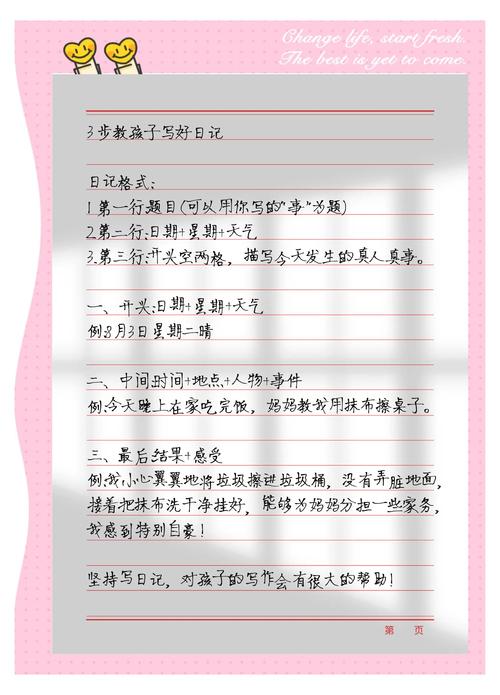 Change life, start fresh.
The best is yet to come.
3步教孩子写好日记
日记格式:
1.第一行:题目(可以用你写的"事"为题)
2.第二行:日期+星期+天气
3.第三行:开头空两格，描写今天发生的真人真事。
一、开头:日期+星期+天气
例:8月3日 星期二晴
二、中间:时间+地点+人物+事件
例:今天晚上在家吃完饭，妈妈教我用抹布擦桌子。
三、最后:结果+感受
例:我小心翼翼地将垃圾擦进垃圾桶，没有弄脏地面，
接着把抹布洗干净挂好，能够为妈妈分担一些家务，
我感到特别自豪!
坚持写日记，对孩子的写作会有很大的帮助!
第 页